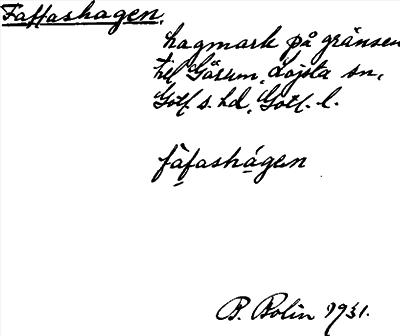 Faffashagen.
hagmark på gränsen
till Gärum, Lojsta sn,
Gotl. s. hd, Gotl. l.
fàfashá̱gen
B. Bolin 1931.